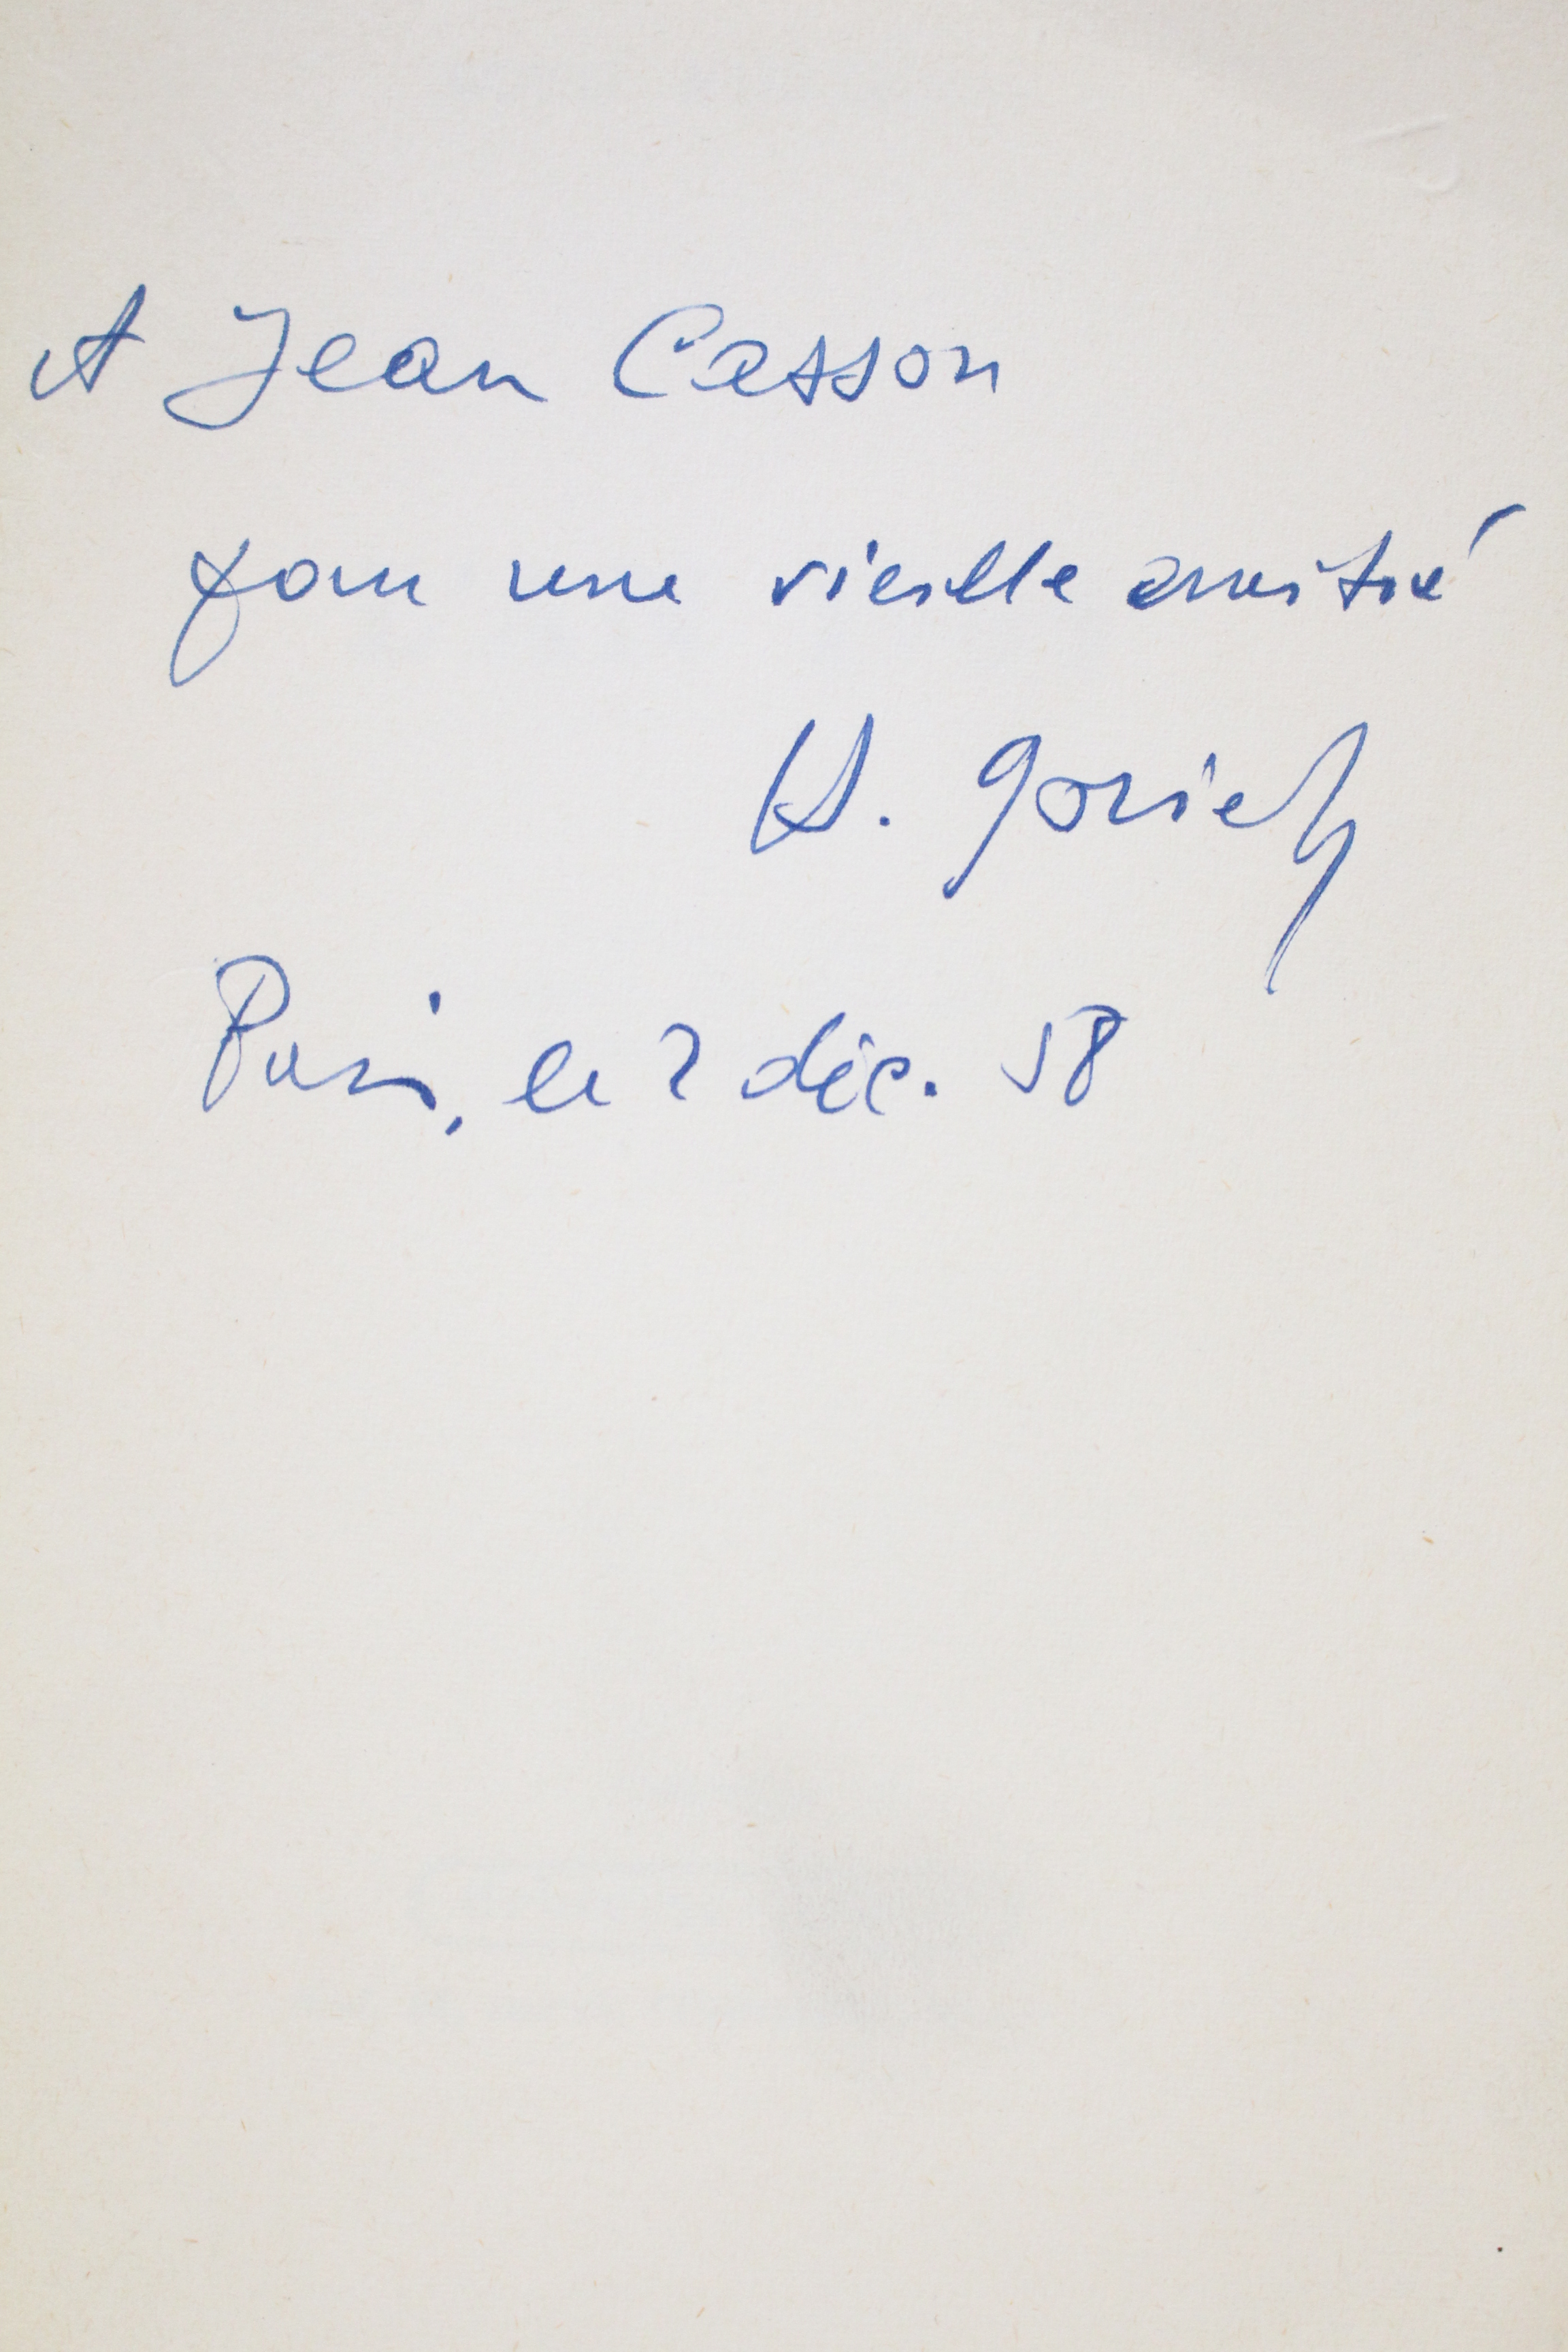 A Jean Cassou
pour une vieille amitié
H.
Paris, le 2 déc. 58